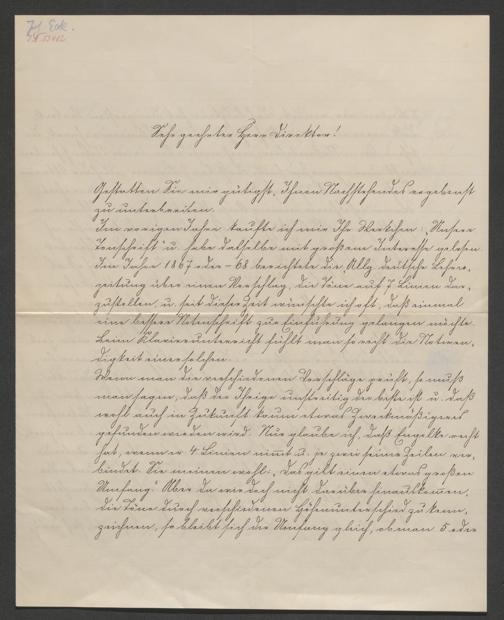 Sehr geehrter Herr Direktor!
Gestatten Sie mir gütigst, Ihnen Nachstehendes ergebenst
zu unterbreiten.
Im vorigen Jahre kaufte ich mir Ihr Werkchen „Unsere
Tonschrift" u. habe dasselbe mit großem Interesse gelesen.
Im Jahre 1867 oder -68 berichtete die Allg. deutsche Lehrer-
zeitung über einen Vorschlag, die Töne auf 7 Linien dar-
zustellen, u. seit dieser Zeit wünschte ich oft, daß einmal
eine bessere Notenschrift zur Einführung gelangen möchte.
Beim Klavierunterricht fühlt man so recht die Notwen-
digkeit einer solchen.
Wenn man die verschiedenen Vorschläge prüft, so muß
man sagen, daß der Ihrige unstreitig der beste ist u. daß
wohl auch in Zukunft kaum etwas Zweckmäßigeres
gefunden werden wird. Nur glaube ich, daß Engelke recht
hat, wenn er 4 Linien nimmt u. je zwei seiner Zeilen ver-
bindet. Sie meinen wohl: „Das gibt einen etwas großen
Umfang." Aber da wir doch nicht darüber hinauskommen,
die Töne durch verschiedenen Höhenunterschied zu kenn-
zeichnen, so bleibt sich der Umfang gleich, ob man 5 oder